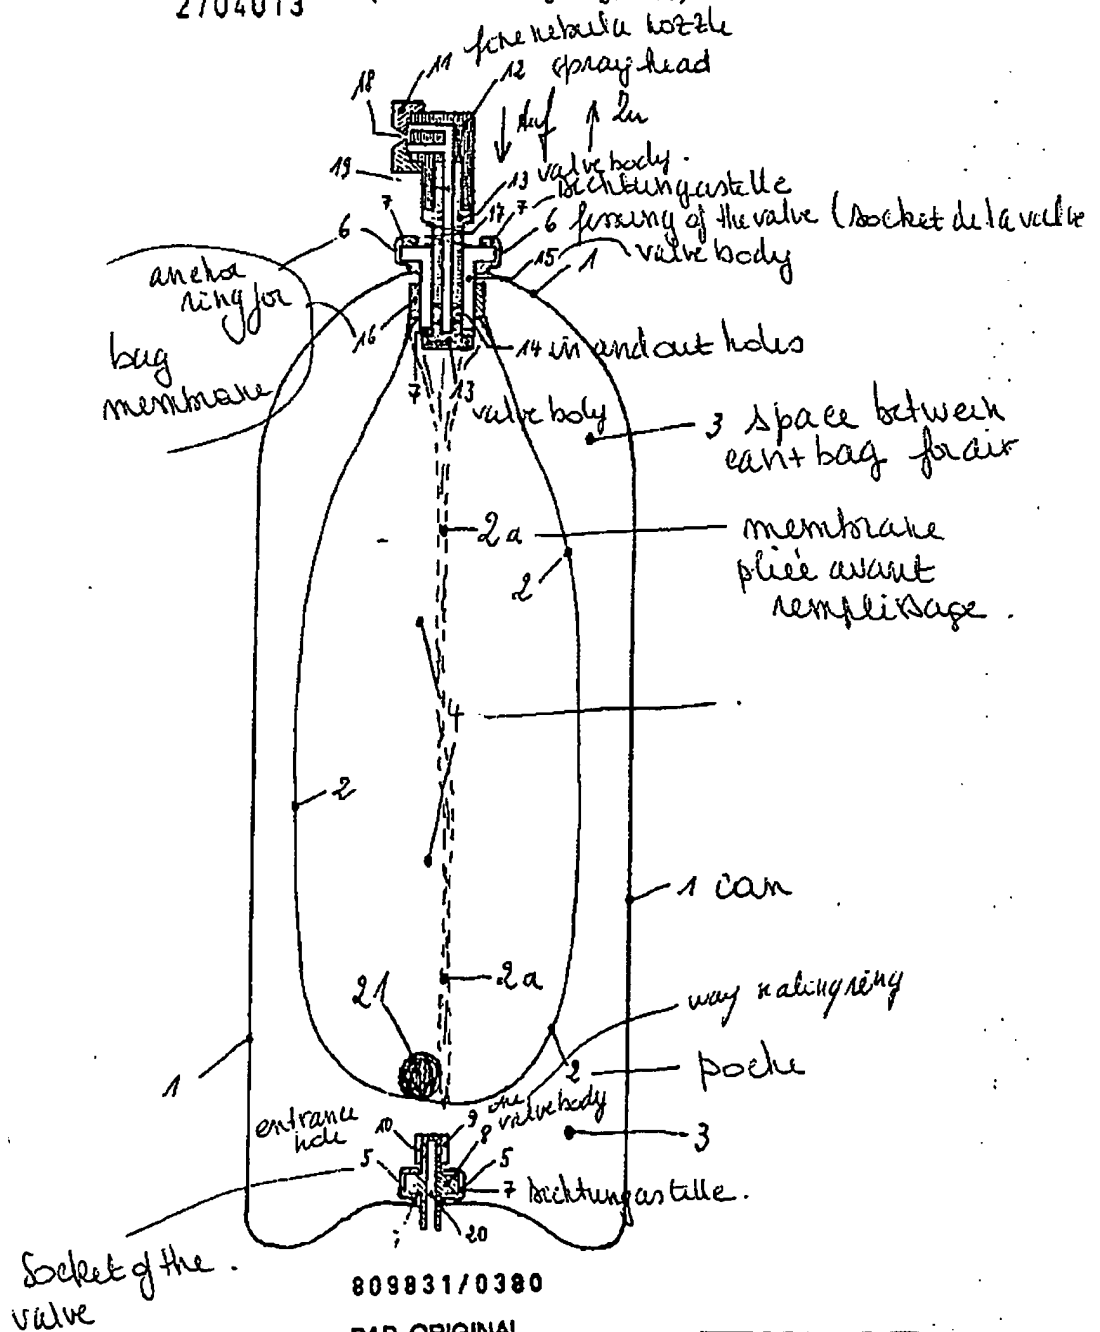 2704013
11 fine nebula nozzle
12 spray head
18
Auf Zu
19
13 valve body.
7 17 7 Dichtungsstelle
6 6 fixing of the valve (socket de la valve
15 valve body
1
anchor
ring for
bag
membrane
16
14 in and out holes
7 13
valve body
3 space between
can + bag for air
2a membrane
pliée avant
remplissage.
2
4
2
1 can
2a
21
way
1
2 poche
entrance
hole
10 9 the
valve body
8
3
5 5
7 Dichtungsstelle.
20
Socket of the.
valve
809831/0380